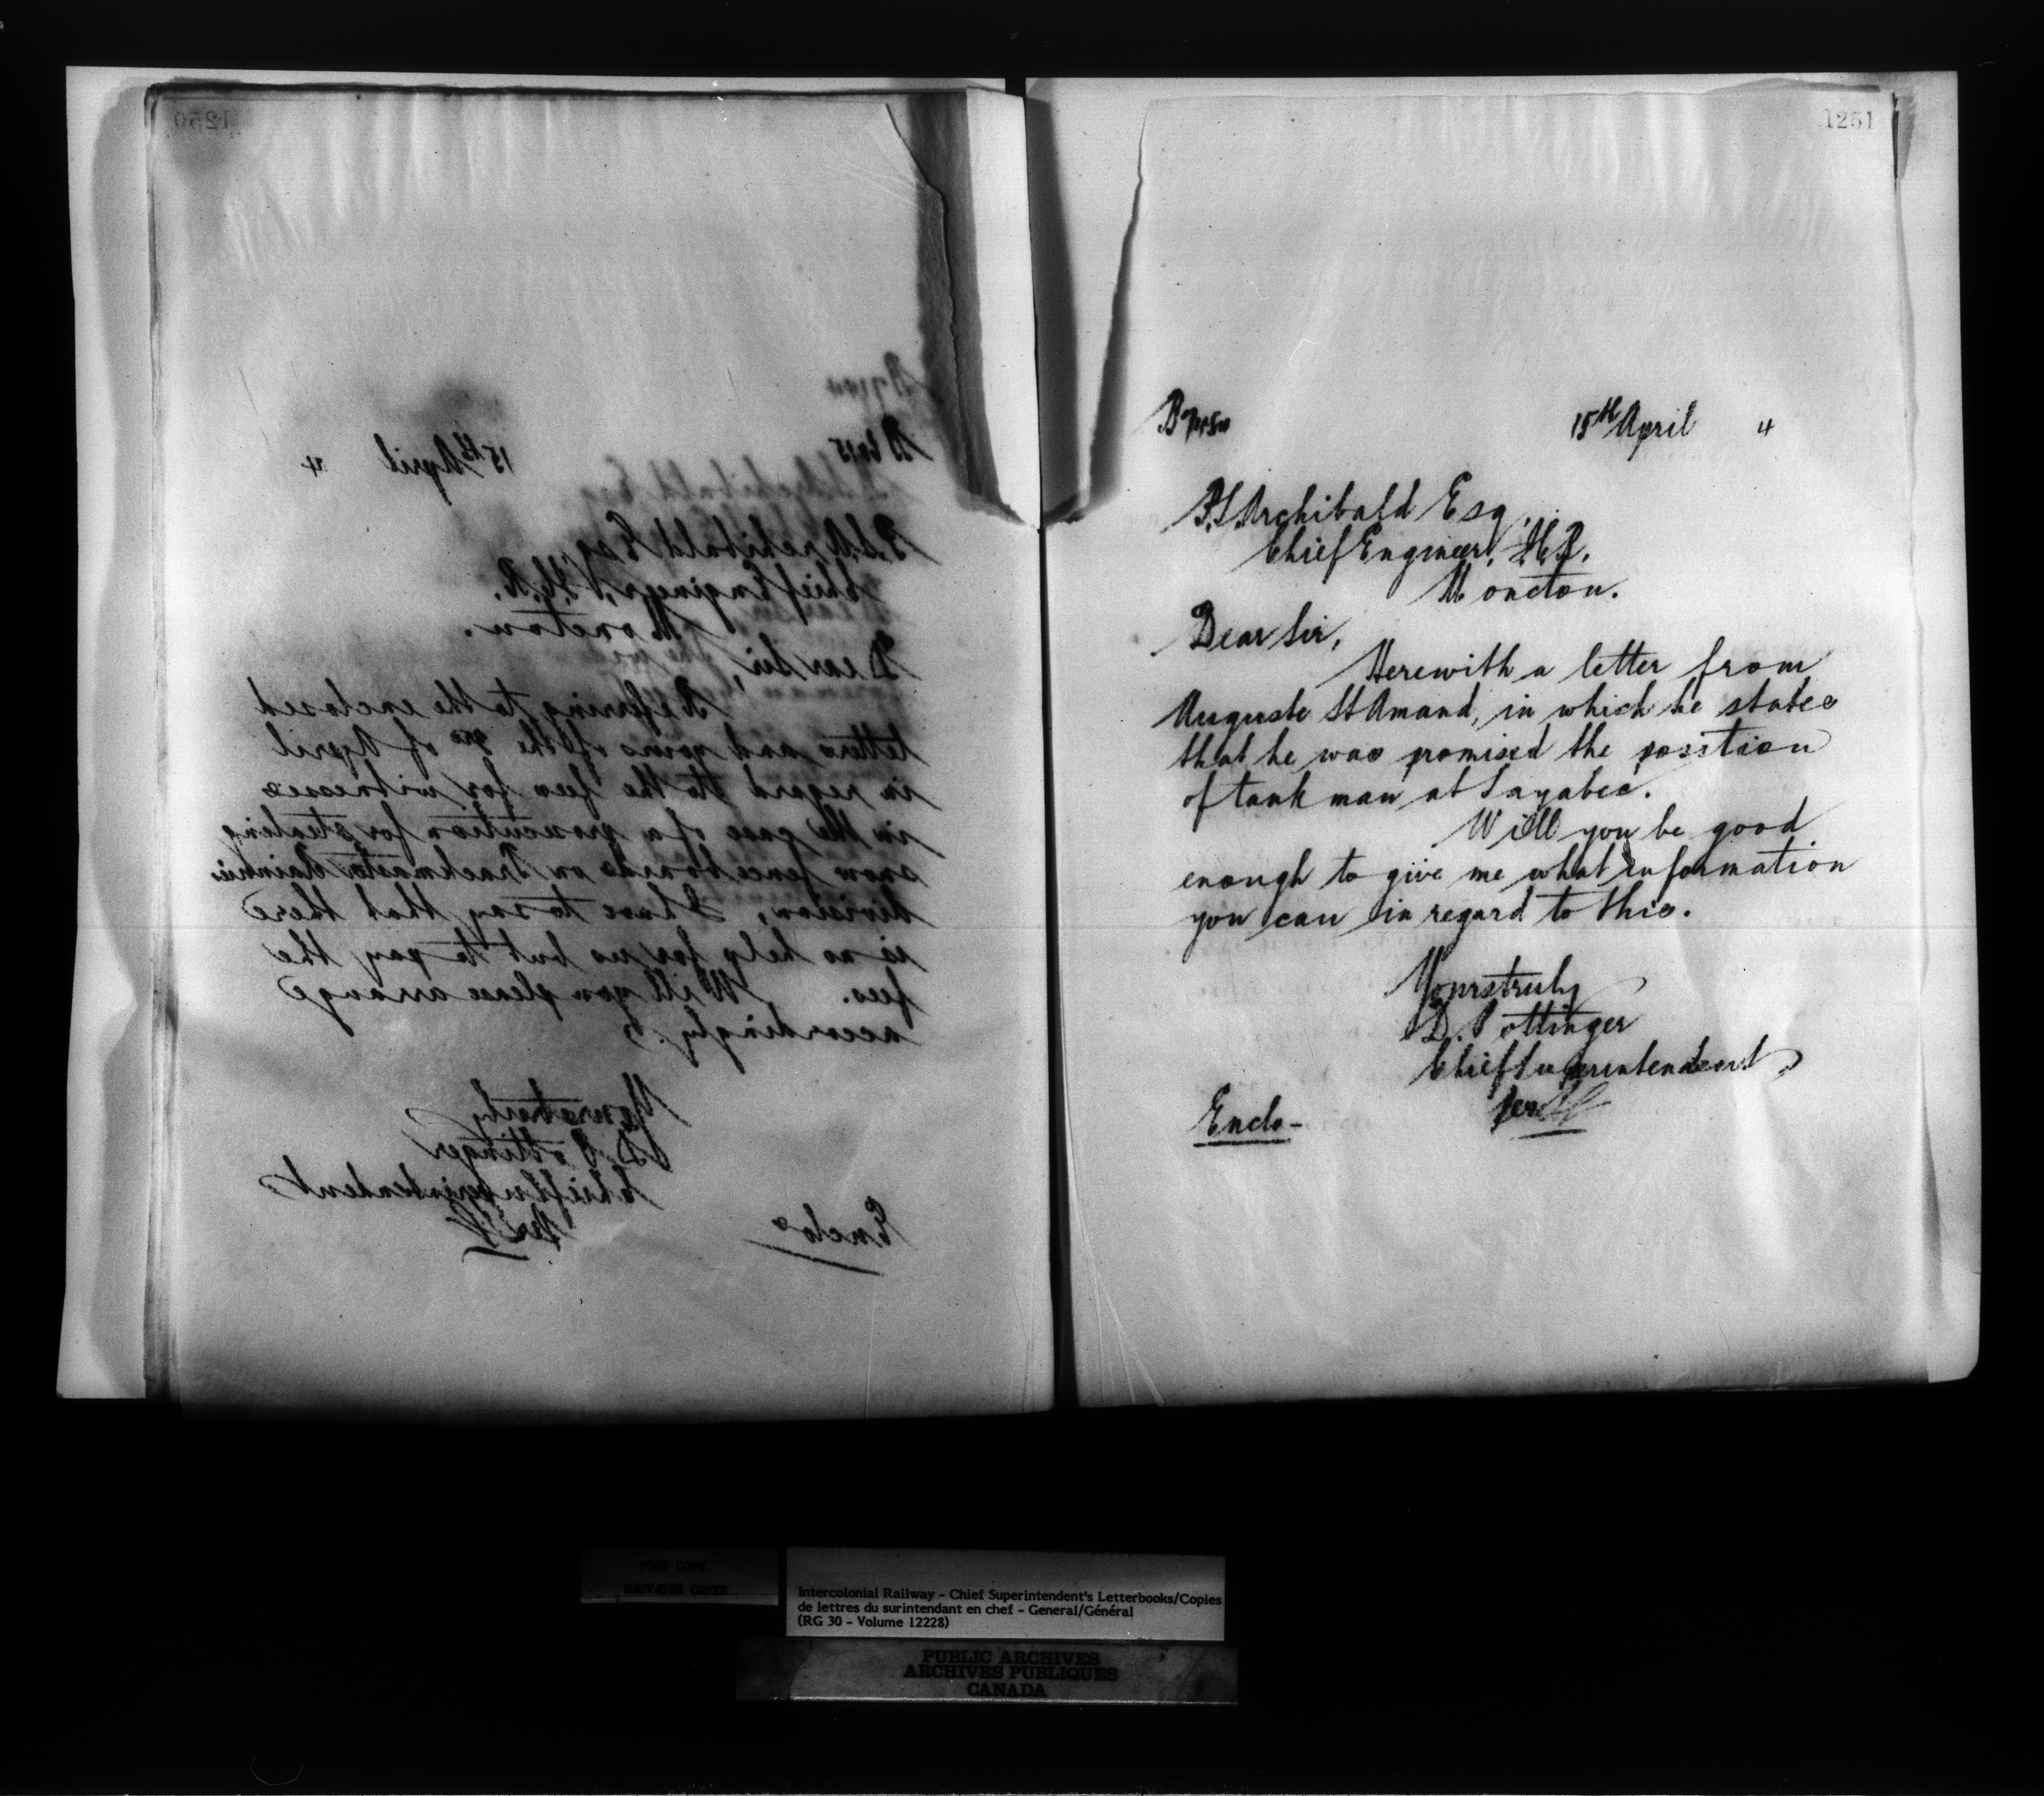 1250
B 6015 15th April 4
P.S. Archibald Esq
Chief Engineer, I.C.R.
Moncton.
Dear Sir,
Referring to the enclosed
letters and yours of the of April
in regard to the fees for witnesses
in the case of a prosecution for stealing
snow fence boards on Trackmaster
division, I have to say that there
is no help for us but to pay the
fees. Will you please arrange
accordingly.
Yours truly
D. Pottinger
Chief Superintendent
Per
Enclos
1251
15th April 4
P.S. Archibald Esq.
Chief Engineer, I.C.R.
Moncton.
Dear Sir,
Herewith a letter from
Auguste St Amand, in which he states
that he was promised the position
of tankman at Sayabec.
Will you be good
enough to give me what information
you can in regard to this.
Yours truly
D. Pottinger
Chief Superintendent
Per
Enclo-
POOR COPY
MAUVAISE COPIE
Intercolonial Railway – Chief Superintendent's Letterbooks/Copies
de lettres du surintendant en chef – General/Général
(RG 30 – Volume 12228)
PUBLIC ARCHIVES
ARCHIVES PUBLIQUES
CANADA